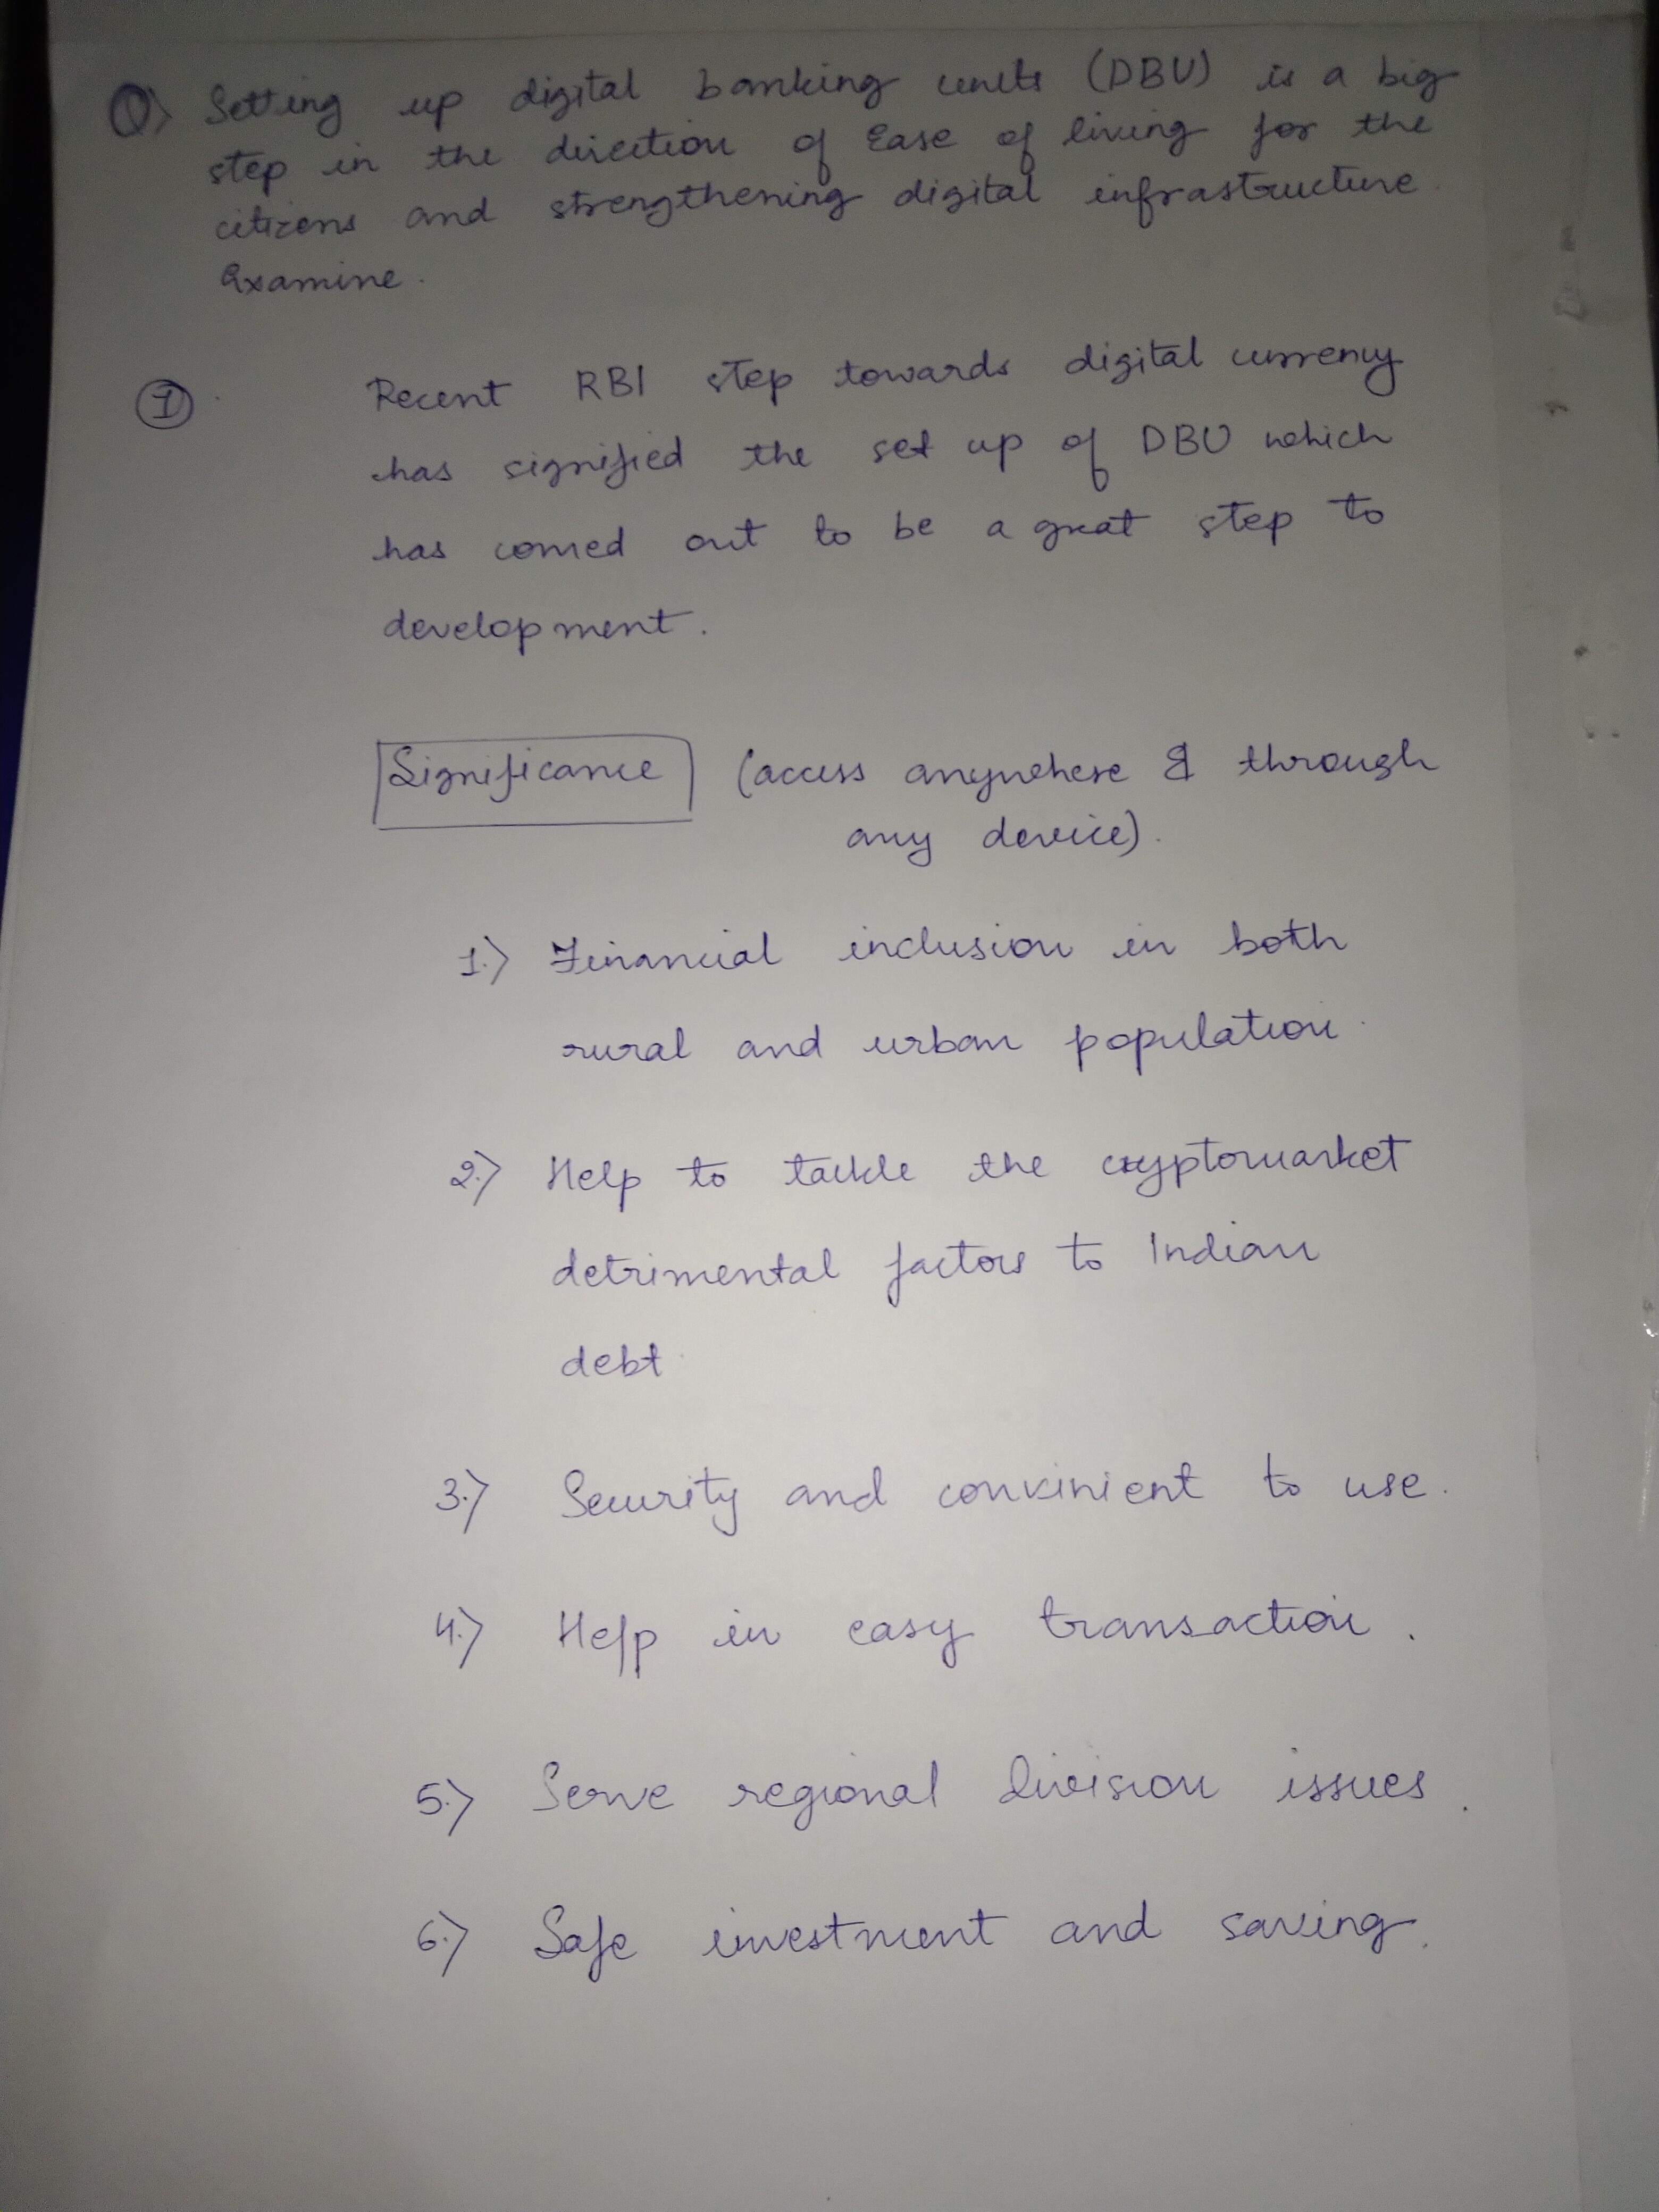 Q) Setting up digital banking units (DBU) is a big
step in the direction of Ease of living for the
citizens and strengthening digital infrastructure.
Examine.
1 Recent RBI step towards digital currency
has signified the set up of DBU which
has comed out to be a great step to
development.
Significance (access anywhere & through
any device).
1.) Financial inclusion in both
rural and urban population.
2.) Help to tackle the cryptomarket
detrimental factors to Indian
debt.
3.) Security and convinient to use.
4.) Help in easy transaction.
5.) Serve regional division issues.
6.) Safe investment and saving.